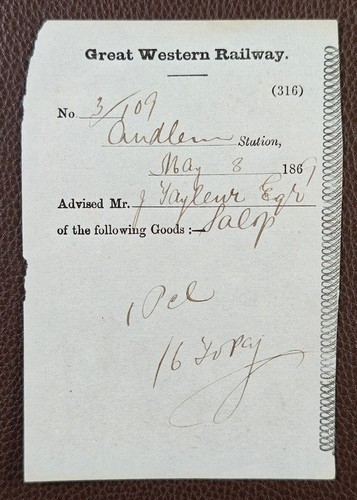 Great Western Railway.
(316)
No 3/109
Audlem Station,
May 8 1869
Advised Mr. J Tayleur Esqr
of the following Goods :— Salop
1 Pcl
16